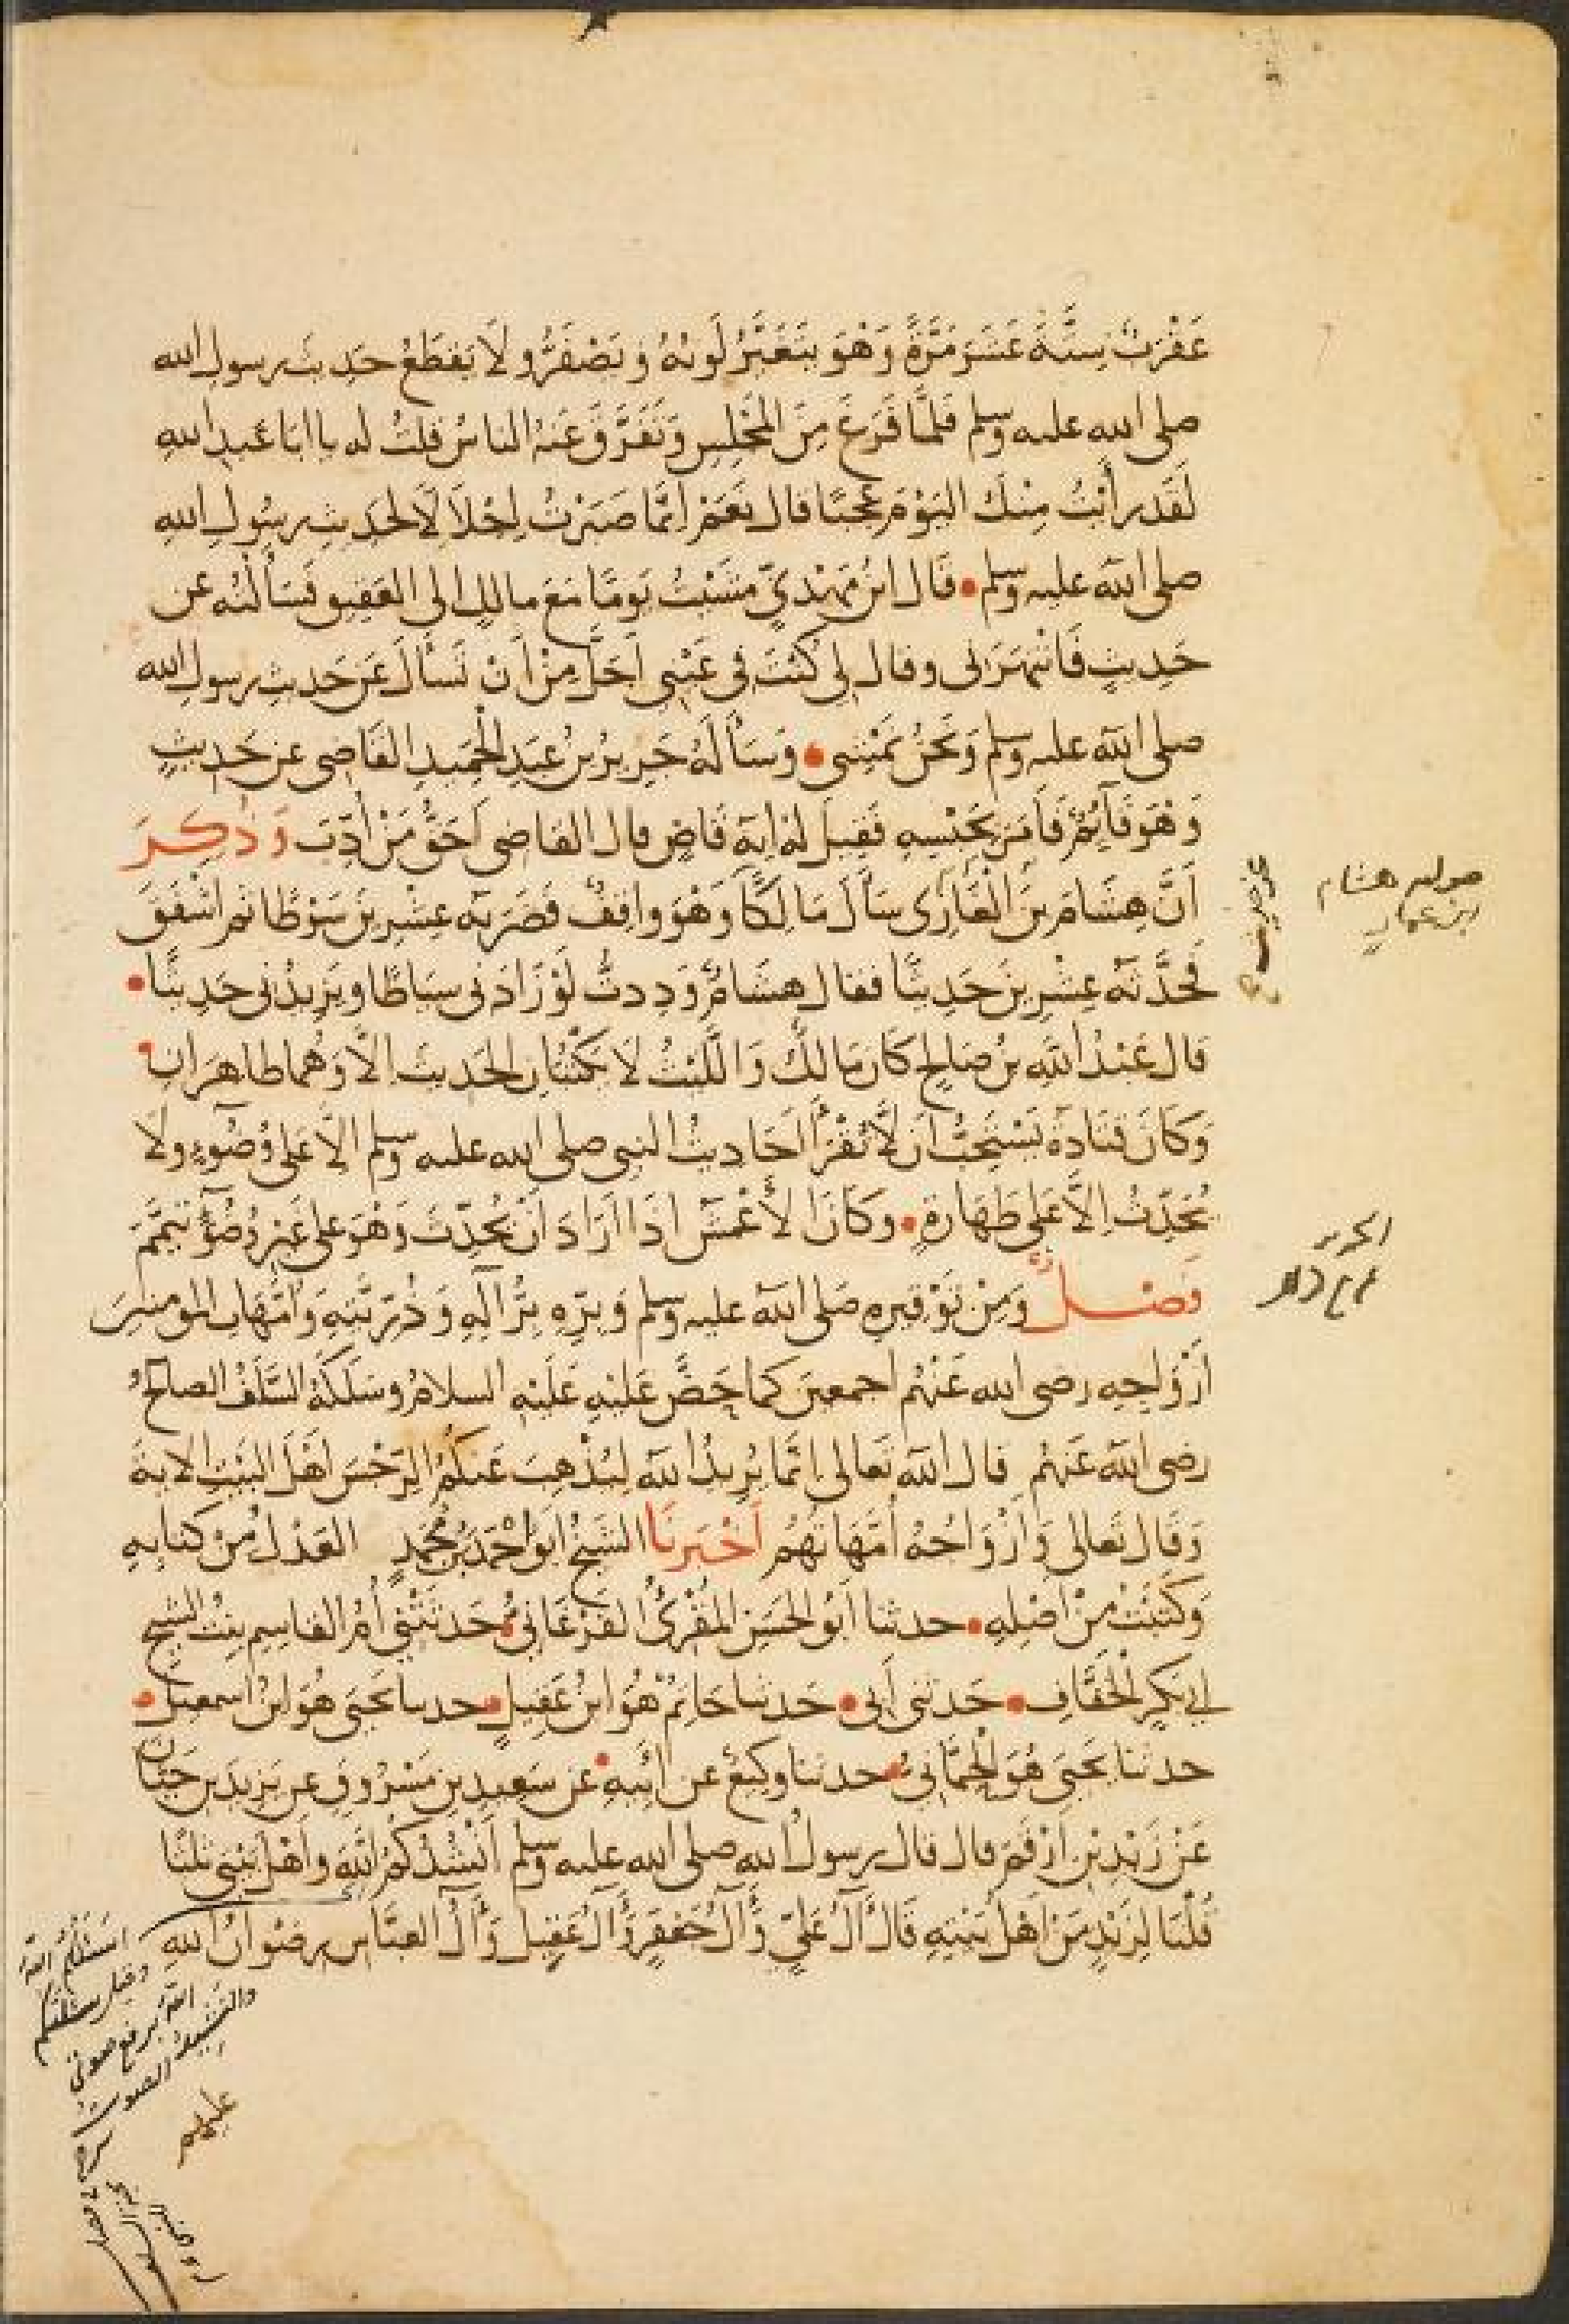 عَقْرَبٌ سِتَّةَ عَشَرَ مَرَّةً وَهُوَ يَتَغَيَّرُ لَونُهُ وَيَصْفَرُّ ولَا يَقطَعُ حَدِيثَ رسولِ الله
صلى الله عليه وسلم فَلَمَّا فَرَغَ مِنَ المَجْلِسِ وَتَفَرَّقَ عَنهُ الناسُ قلتُ له يا ابَا عَبدِ اللهِ
لَقَد رأيْتُ مِنْكَ اليَوْمَ عَجَبًا قال نَعَمْ انَّمَا صَبَرْتُ اِجْلَالًا لحَدِيثِ رسُولِ اللهِ
صلى الله عليه وسلم • قَال ابْنُ مَهْدِيٍّ مَشَيْتُ يَومًا مَعَ مالكٍ الى العَقِيقِ فَسَأَلْتُه عن
حَدِيثٍ فَانْتَهَرَنى وقال لِى كُنْتَ فى عَيْنِى اَجَلَّ مِنْ اَنْ تَسْأَلَ عَن حَدِيثِ رسولِ الله
صلى الله عليه وسلم وَنَحْنُ نَمْشِى • وَسَأَلَهُ جَرِيرُ بنُ عَبدِ الحَمِيدِ القَاضِى عن حَدِيثٍ
وَهْوَ قَآئِمٌ فَاَمَرَ بِحَبْسِهِ فَقِيلَ لهُ اِنهُ قَاضٍ قال القاضِى اَحَقُّ مَنْ اُدِّبَ وَذُكِرَ
اَنَّ هِشَامَ بنَ الْغَازِى سَأَلَ مَالِكًا وَهْوَ واقِفٌ فَضَرَبَهُ عِشْرِينَ سَوْطًا ثم اَشْفَقَ
فَحَدَّثَهُ عِشْرِينَ حَدِيثًا فقال هِشَامٌ وَدِدتُّ لَوْ زَادَنى سِيَاطًا ويَزِيدُنى حَدِيثًا •
قال عَبْدُ اللهِ بنُ صَالِحٍ كَانَ مَالكٌ وَاللَّيْثُ لَا يَكْتُبَانِ الحَدِيثَ اِلَّا وَهُما طاهِرَانِ •
وَكَانَ قتَادةُ يَسْتَحِبُّ اَن لَّا تُقْرَأَ اَحَادِيثُ النبى صلى الله عليه وسلم الَّا عَلى وُضوءٍ ولَا
يُحَدِّثُ اِلَّا عَلى طَهَارَةٍ • وكَانَ الأَعْمَشُ اذَا اَرَادَ اَنْ يُحَدِّثَ وَهْوَ على غَيرِ وُضُوءٍ تيَمَّمَ
فَصْلٌ وَمِنْ تَوْقِيرِهِ صَلى الله عليه وسلم وَبِرِّهِ بِرُّ آلِهِ وَذُرِّيَّتِهِ وَاُمَّهَاتِ المومنينَ
اَزْوَاجِه رضى الله عَنْهُم اجمعينَ كما حَضَّ عَلَيْهِ عَلَيْهِ السلامُ وسَلَكَهُ السَّلَفُ الصالحُ
رضى الله عَنهُم قال الله تَعالى انَّما يُرِيدُ الله لِيُذْهِبَ عَنكُمُ الرِّجْسَ اَهْلَ البَيْتِ الاية
وَقَال تَعالى وَاَزْوَاجُهُ اُمَّهَاتُهُمُ اَخْبَرَنَا الشَيْخُ ابُو اَحْمَد بنُ مُحَمدٍ العَدْلُ مِنْ كتابِهِ
وكَتَبْتُ مِنْ اَصْلِهِ • حدثنا اَبُو الحَسَنِ المُقْرِىُ الفَرْغَانِىُّ حَدثَتْنِى أُمُّ القاسِمِ بِنْتُ الشيخِ
اَبِى بَكرٍ الخَفَّافِ • حَدثنى اَبِى • حَدثنا حَاتِمٌ هُوَ ابنُ عَقِيلٍ • حدثنا يَحْيَى هُوَ ابنُ اسمعيلَ •
حدثنا يَحيَى هُوَ الحِمَّانِىُّ حدثنا وكِيعٌ عن ابِيهِ • عن سَعِيدِ بنِ مَسْرُوقٍ عن يَزِيدَ بنِ حَيَّانَ
عَنْ زَيْدِ بنِ اَرْقَمَ قال قال رسولُ اللهِ صلى الله عليه وسلم اَنْشُدُكُمُ اللهَ وأَهْلَ بَيْتِى ثَلثًا
قُلْنَا لِزَيْدٍ مَن اَهْلُ بَيْتِهِ قَالَ آلُ عَلِيٍّ وَآلُ جَعْفَرٍ وَآلُ عَقِيلٍ وَآلُ العبَّاسِ رِضْوَانُ اللهِ
عليهم
صوابه هشام
ابن عمار
اسئلكم الله
وقيل سئلتكم
الله برفع صوتى
والنشيد الصوت